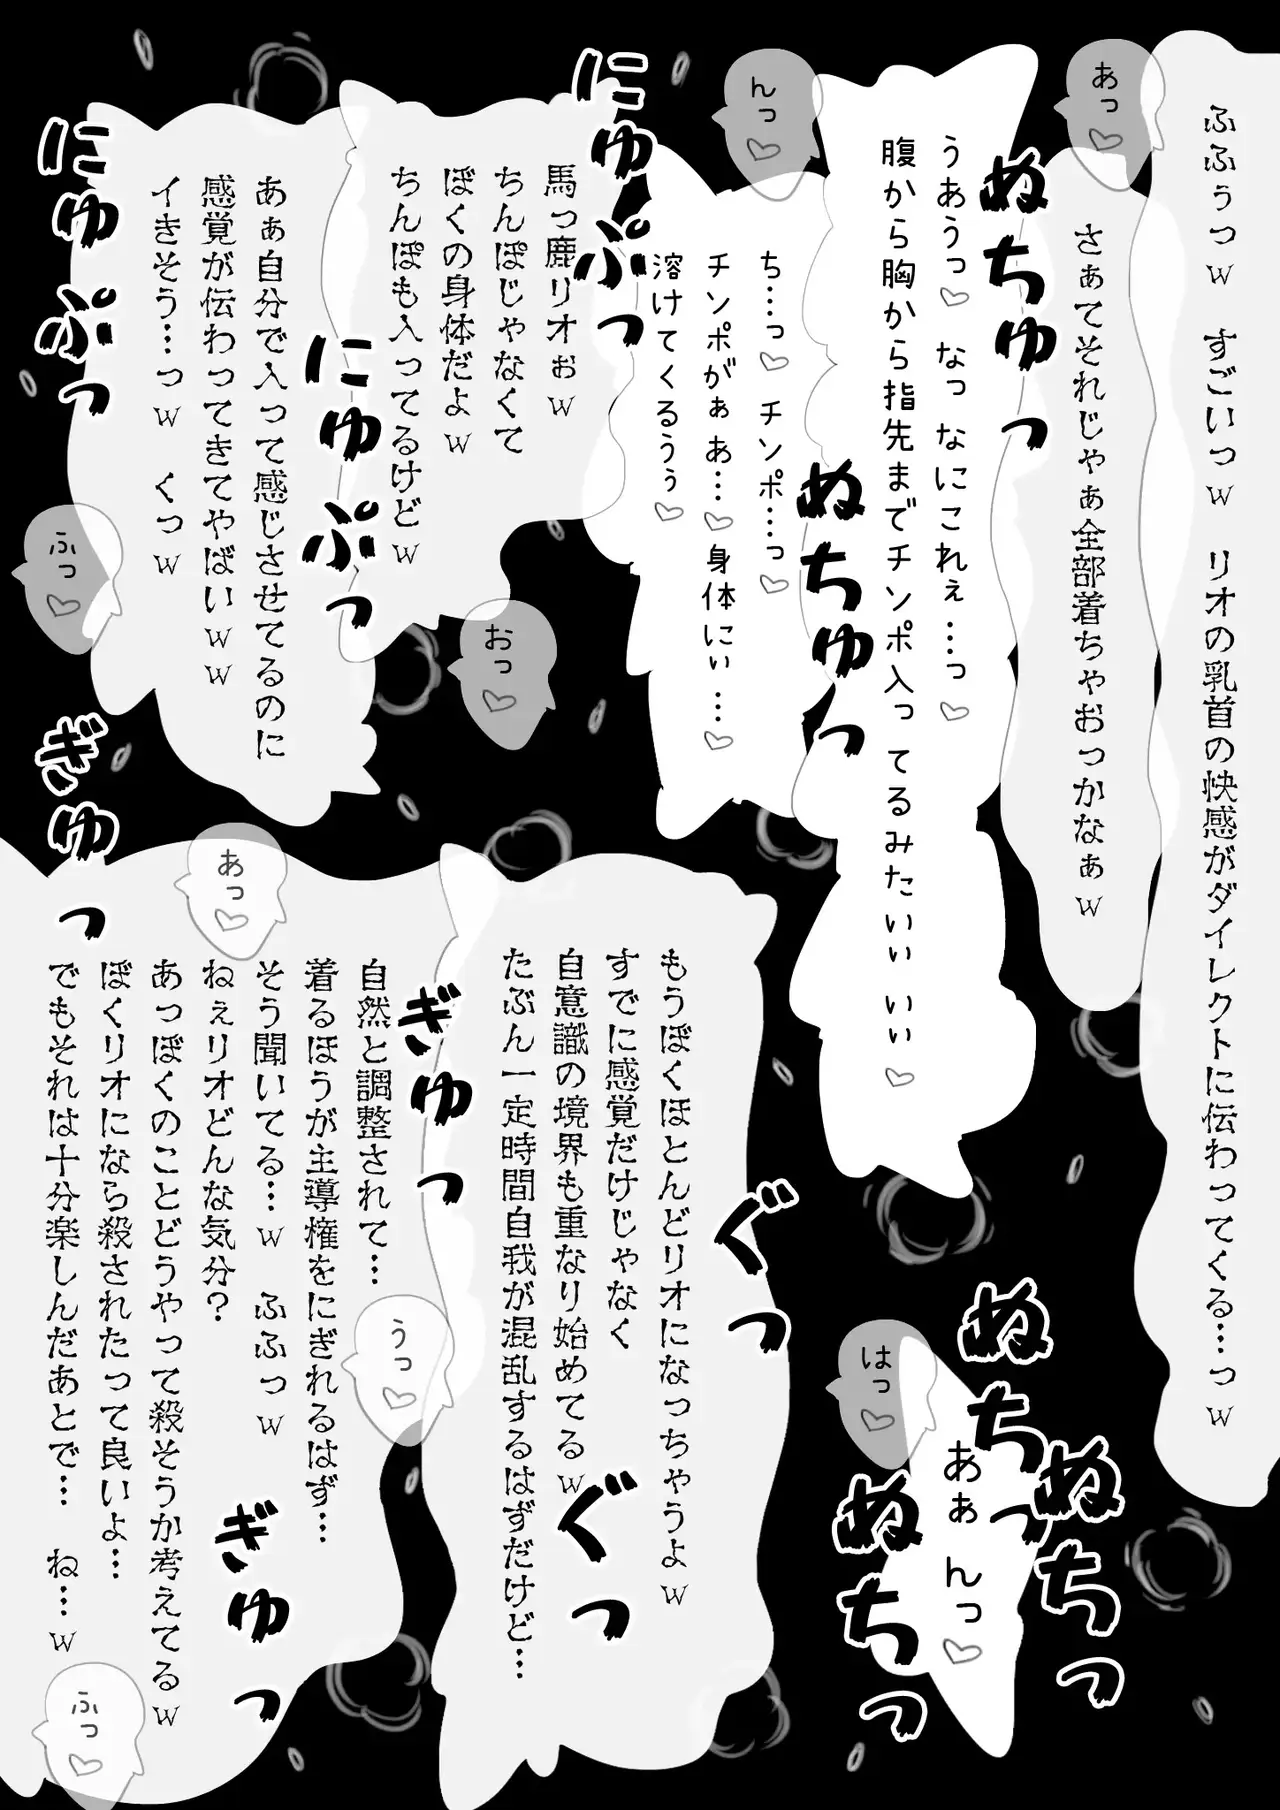 ふふぅっw　すごいっw　リオの乳首の快感がダイレクトに伝わってくる…っw
さぁてそれじゃぁ全部着ちゃおっかなぁw
あっ♡
ぬちゅっ
うあうっ♡　なっ　なにこれぇ…っ♡
腹から胸から指先までチンポ入ってるみたいぃぃぃ♡
ぬちゅっ
んっ♡
ち…っ♡チンポ…っ♡
チンポがぁあ…♡身体にぃ…♡
溶けてくるうぅ♡
にゅぷっ
馬っ鹿リオぉw
ちんぽじゃなくて
ぼくの身体だよw
ちんぽも入ってるけどw
おっ♡
にゅぷっ
あぁ自分で入って感じさせてるのに
感覚が伝わってきてやばいww
イきそう…っw　くっw
にゅぷっ
ふっ♡
ぬちっ
ぬちっ
ぬちっ
はっ♡
あぁんっ♡
ぐっ
もうぼくほとんどリオになっちゃうよw
すでに感覚だけじゃなく
自意識の境界も重なり始めてるw
たぶん一定時間自我が混乱するはずだけど…
ぐっ
ぎゅっ
うっ♡
自然と調整されて…
着るほうが主導権をにぎれるはず…
そう聞いてる…w　ふふっw
ねぇリオどんな気分?
あっぼくのことどうやって殺そうか考えてるw
ぼくリオになら殺されたって良いよ…
でもそれは十分楽しんだあとで…　ね…w
あっ♡
ぎゅっ
ぎゅっ
ふっ♡